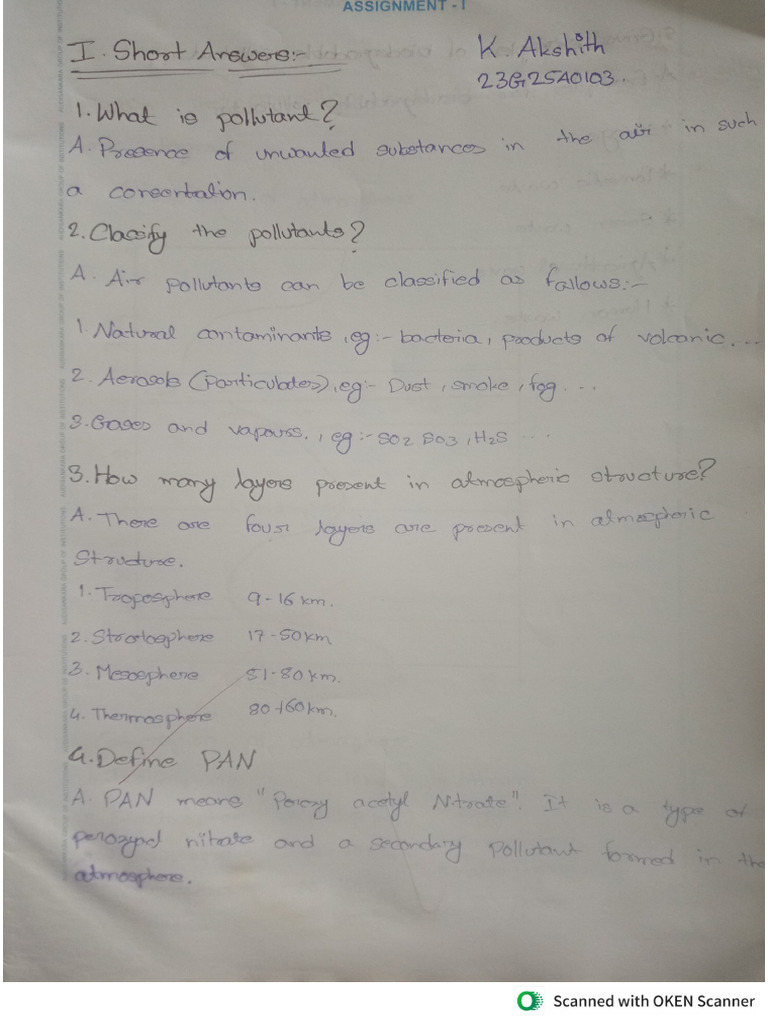 ASSIGNMENT - I
I. Short Answers:-
K. Akshith
23G25A0103.
1. What is pollutant?
A. Presence of unwanted substances in the air in such
a consentration.
2. Classify the pollutants?
A. Air pollutants can be classified as fallows:-
1. Natural contaminants, eg:- bacteria, products of volcanic...
2. Aerosols (Particulates), eg:- Dust, smoke, fog...
3. Gases and vapours., eg:- SO2 SO3, H2S ...
3. How many layers present in atmospheric structure?
A. There are four layers are present in atmospheric
Structure.
1. Troposphere 9-16 km.
2. Stratosphere 17-50km
3. Mesosphere 51-80 km.
4. Thermosphere 80-160km.
4. Define PAN
A. PAN means "Peroxy acetyl Nitrate". It is a type of
nitrate and a secondary Pollutant formed in the
atmosphere.
Scanned with OKEN Scanner